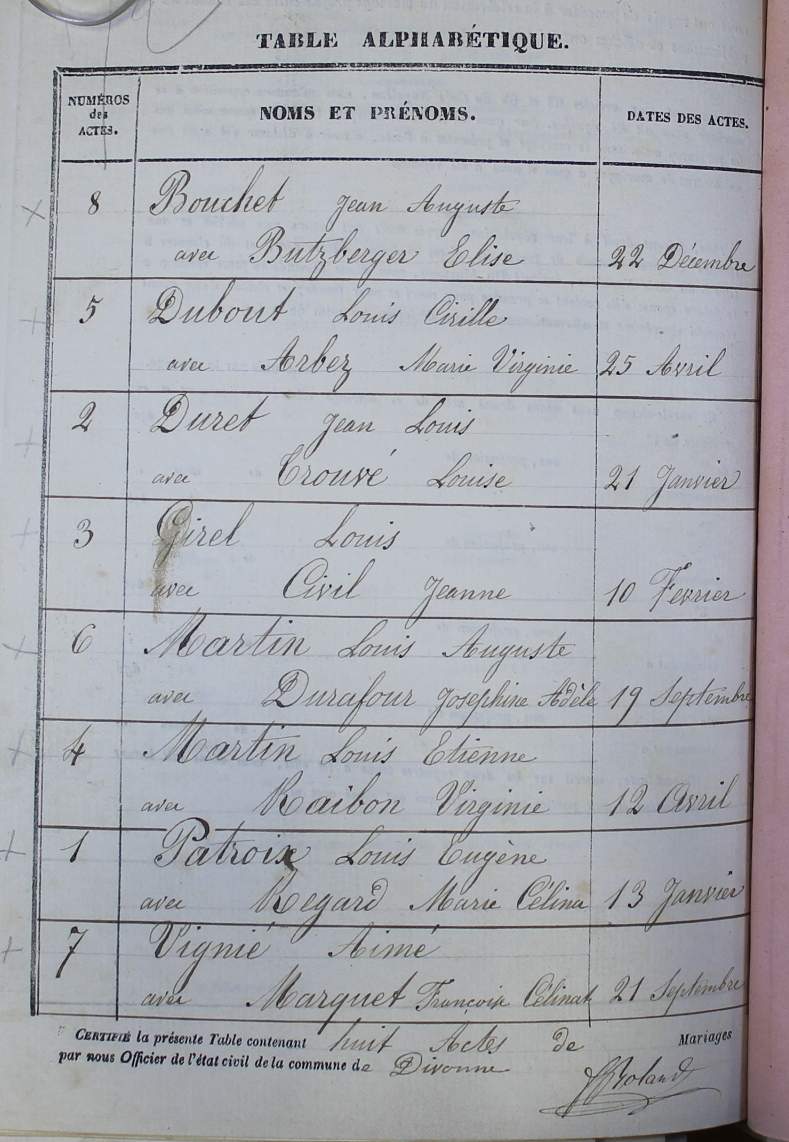 TABLE ALPHABÉTIQUE.
NUMÉROS
des
ACTES.
NOMS ET PRÉNOMS.
DATES DES ACTES.
8 Bouchet Jean Auguste
avec Butzberger Elise 22 Décembre
5 Dubout Louis Cirille
avec Arbez Marie Virginie 25 Avril
2 Duret Jean Louis
avec Trouvé Louise 21 Janvier
3 Girel Louis
avec Civil Jeanne 10 Fevrier
6 Martin Louis Auguste
avec Durafour Josephine Adèle 19 Septembre
4 Martin Louis Etienne
avec Raibon Virginie 12 Avril
1 Patroix Louis Eugène
avec Regard Marie Célina 13 Janvier
7 Vignié Aimé
avec Marquet Françoise Célinat 21 Septembre
CERTIFIÉ la présente Table contenant huit Actes de Mariages
par nous Officier de l'état civil de la commune de Divonne